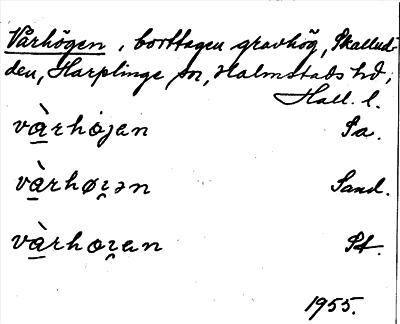 Vårhögen, borttagen gravhög, Skallud-
den, Harplinge sn, Halmstads hd,
Hall. l.
và̱rhöjan Sa.
và̱rhøi̯ən Sand.
và̱rhoi̯an St.
1955.